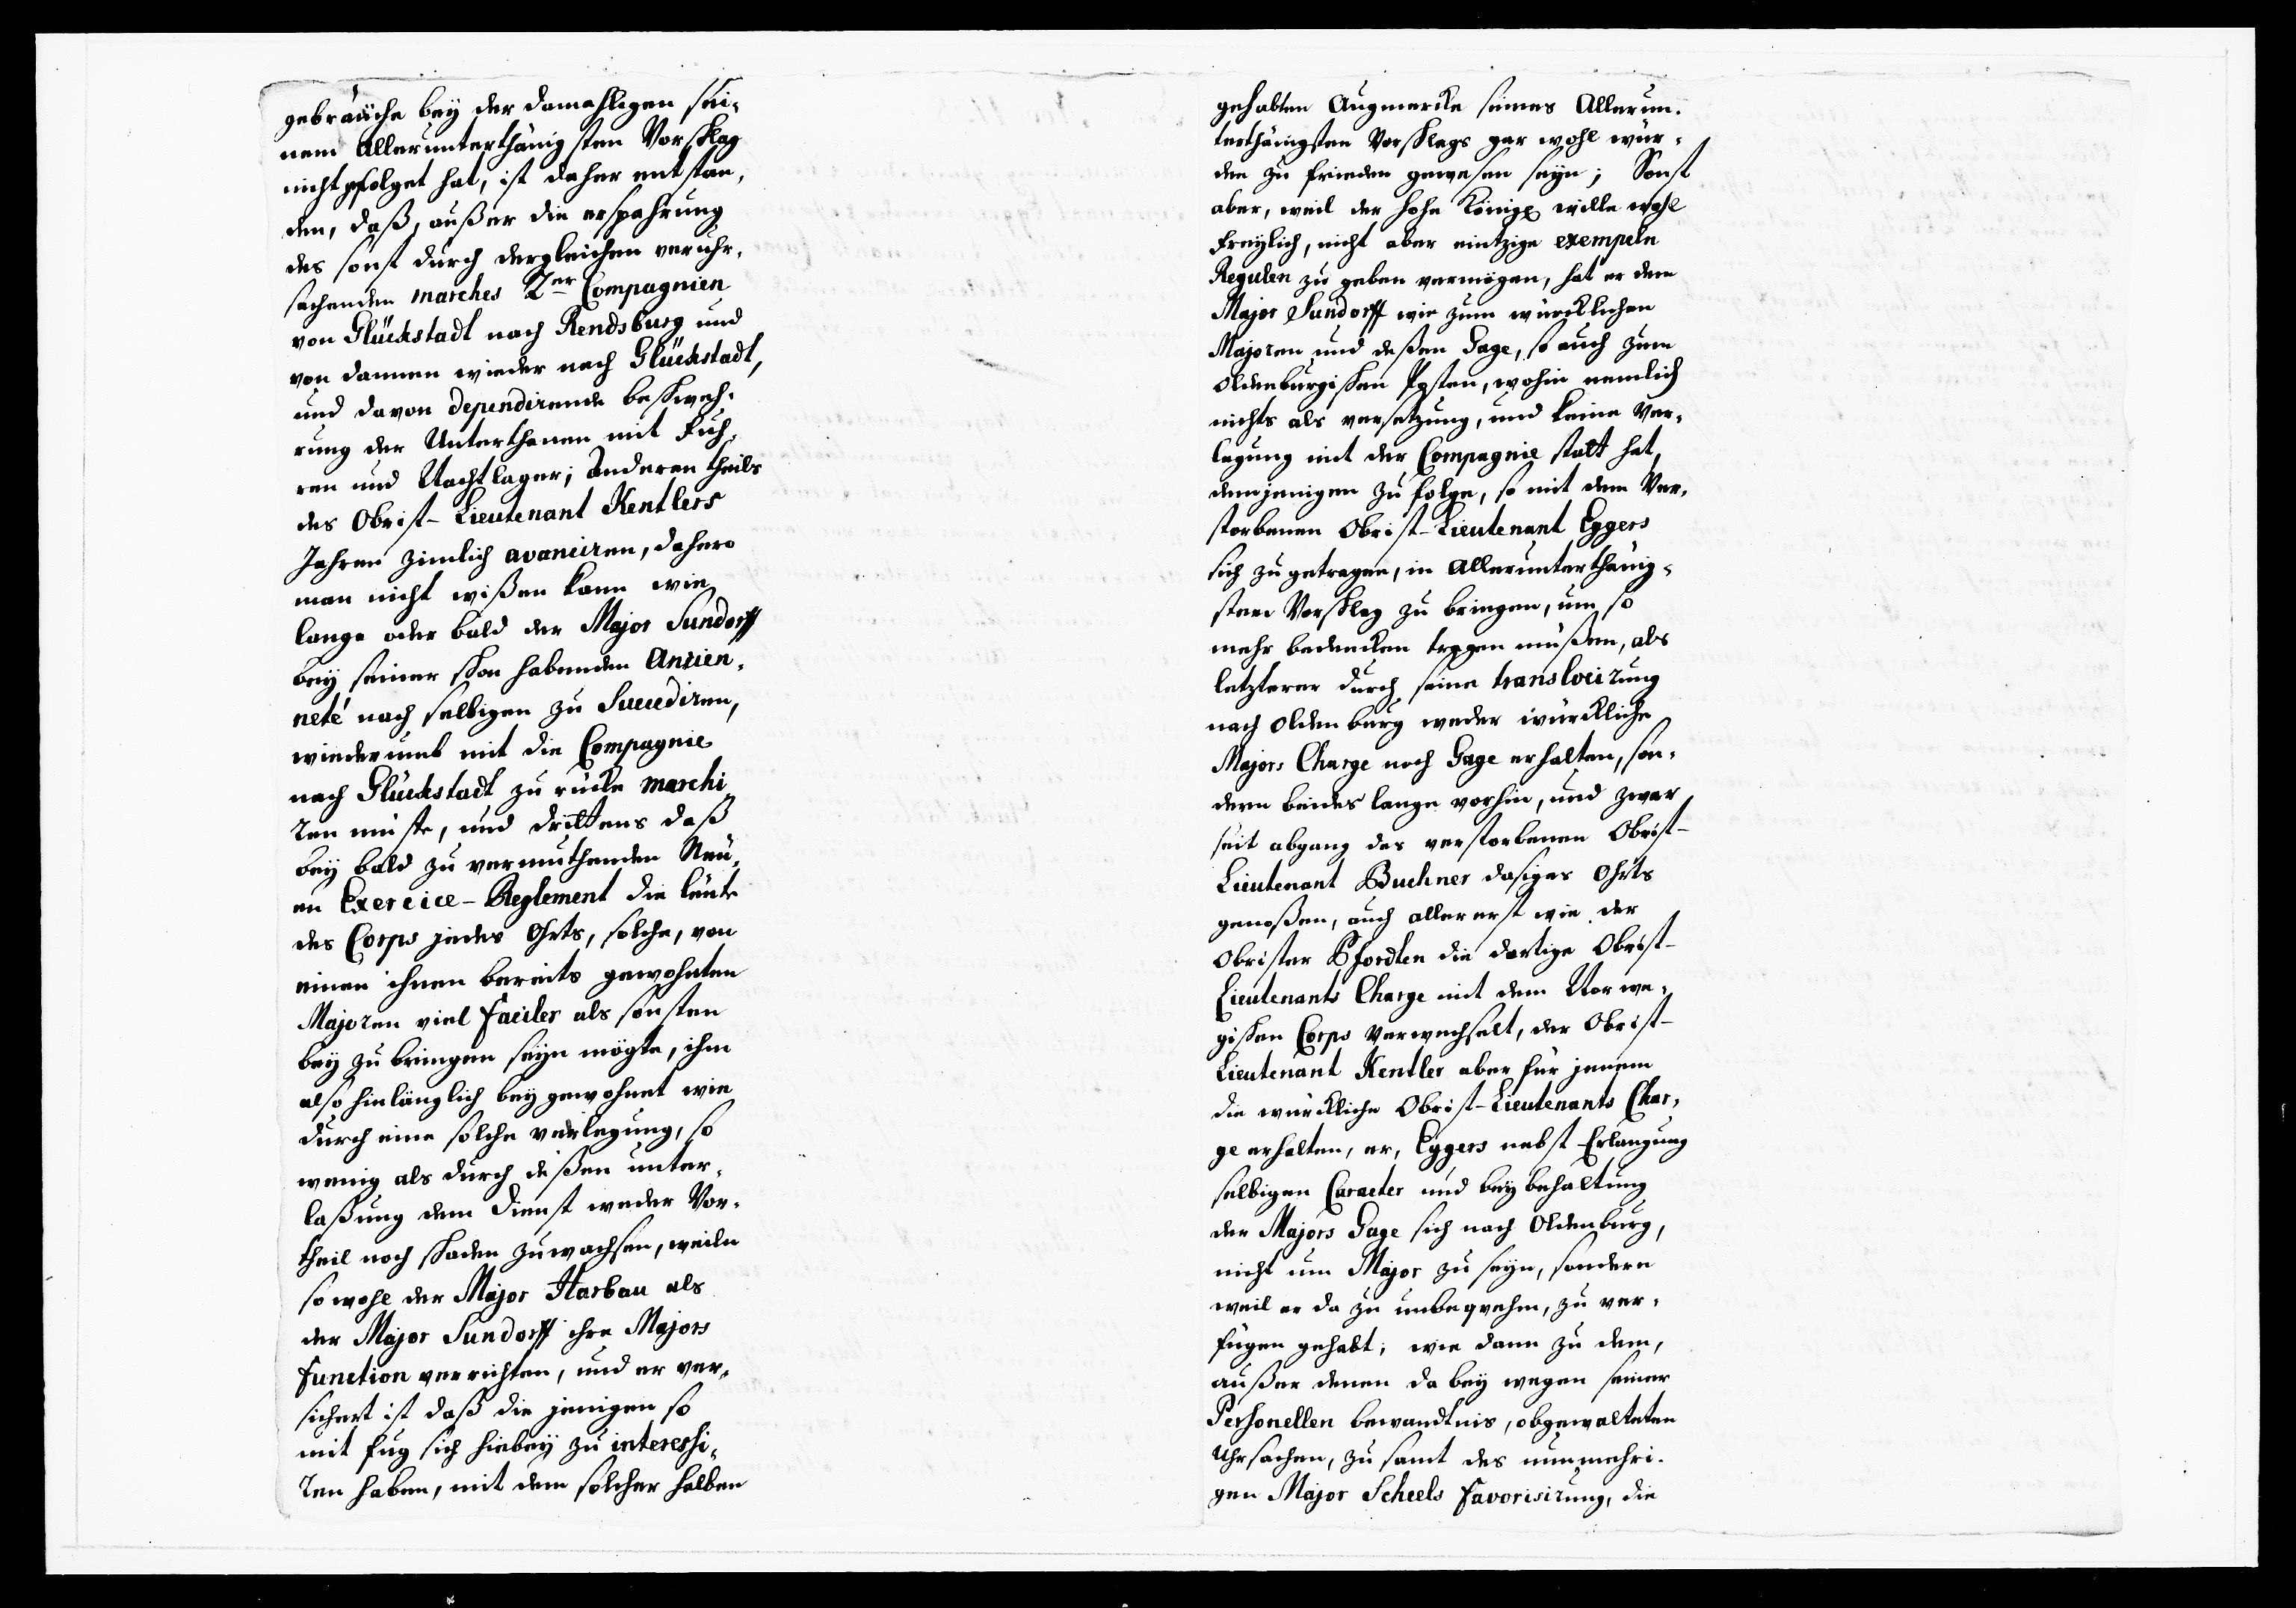 gebraüche bey der damahligen sei¬
nem Allerunterthänigsten Vorschlag
nicht gefolget hat, ist daher entstan¬
den, daß, außer die erspahrung
des sonst durch dergleichen veruhr¬
sachenden marches 2er Compagnien
von Glückstadt nach Rendsburg und
von dannen wieder nach Glückstadt,
und davon dependirende beschweh¬
rung der Unterthanen mit Fuh¬
ren und Nachtlager; Anderen theils
des Obrist-Lieutenant Kentlers
Jahren zimlich avanciren, dahero
man nicht wißen kann wie
lange oder bald der Major Sundorff
bey seiner schon habenden Ancien¬
neté nach selbigen zu Succediren,
wiederumb mit die Compagnie
nach Glückstadt zu rücke marchi¬
ren müste, und drittens daß
bey bald zu vermuthenden Neu¬
en Exercice-Reglement die leute
des Corps jedes Ohrts, solche, von
einen ihnen bereits gewohnten
Majoren viel faciler als sonsten
bey zu bringen seyn mögte, ihm
also hinlänglich beygewohnet wie
durch eine solche verlegung, so
wenig als durch deßen unter¬
laßung dem Dienst weder Vor¬
theil noch schaden zuwachsen, weiln
so wohl der Major Harbau als
der Major Sundorff ihre Majors
function verrichten, und er ver¬
sichert ist daß die jenigen so
mit fug sich hiebey zu interessi¬
ren haben, mit dem solcher halben
gehabten Augmercke seines Allerun¬
terthänigsten Vorschlags gar wohl wür¬
den zu frieden gewesen seyn; Sonst
aber, weil der hohe Königl wille wohl
freylich, nicht aber eintzige exempeln
Regulen zu geben vermögen, hat er dem
Major Sundorff wie zum würcklichen
Majoren und deßen Gage, so auch zum
oldenburgischen Posten, wohin nemlich
nichts als versetzung, und keine Ver¬
legung mit der Compagnie statt hat,
demjenigen zu folge, so mit dem Ver¬
storbenen Obrist-Lieutenant Eggers
sich zugetragen, in Allerunterthänig¬
sten Vorschlag zu bringen, um so
mehr bedencken tragen müßen, als
letzterer durch seine translocirung
nach oldenburg weder würckliche
Majors Charge noch Gage erhalten, son¬
dern beides lange vorhin, und zwar
seit abgang des verstorbenen Obrist-
Lieutenant Buchner dasiges Ohrts
genoßen, auch allererst wie der
Obrister Pfordten die dortige Obrist-
Lieutenants Charge mit dem Norwe¬
gischen Corps verwechselt, der Obrist-
Lieutenant Kentler aber für jenem
die würckliche Obrist-Lieutenants Char¬
ge erhalten, er, Eggers nebst Erlangung
selbigen Caracter und beybehaltung
der Majors Gage sich nach Oldenburg,
nicht um Major zu seyn, sondern
weil er da zu unbeqvehm, zu ver¬
fügen gehabt; wie dann zu dem,
außer denen da bey wegen seiner
Personellen bewandtnis, obgewalteten
Uhrsachen, zu samt des nunmehri¬
gen Major Scheels favorisirung, die